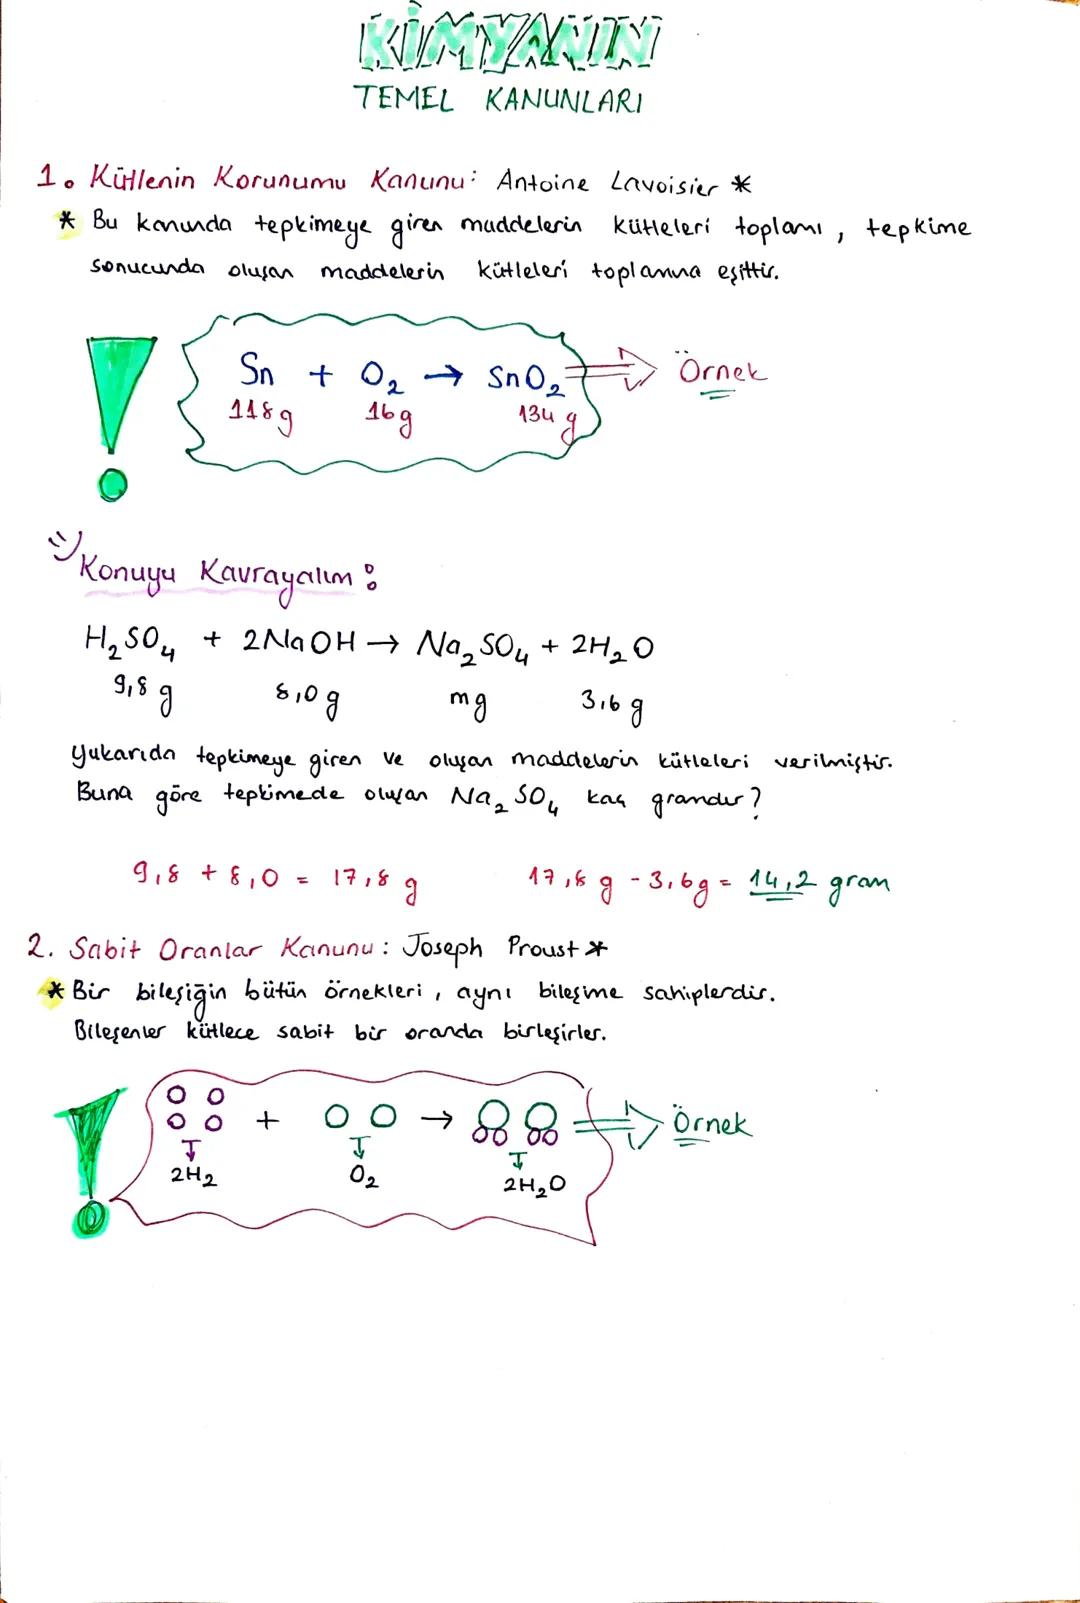 KİMYANIN
TEMEL KANUNLARI
1. Kütlenin Korunumu Kanunu: Antoine Lavoisier *
* Bu kanunda tepkimeye giren maddelerin kütleleri toplamı, tepkime
sonucunda oluşan maddelerin kütleleri toplamına eşittir.
Sn + O₂ → SnO₂ ⇒ Örnek
118g 16g 134 g
Konuyu Kavrayalım:
H₂SO₄ + 2NaOH → Na₂SO₄ + 2H₂O
9,8 g 8,0 g mg 3,6 g
Yukarıda tepkimeye giren ve oluşan maddelerin kütleleri verilmiştir.
Buna göre tepkimede oluşan Na₂SO₄ kaç gramdır?
9,8 + 8,0 = 17,8 g 17,8 g - 3,6g = 14,2 gram
2. Sabit Oranlar Kanunu: Joseph Proust *
* Bir bileşiğin bütün örnekleri, aynı bileşime sahiplerdir.
Bileşenler kütlece sabit bir oranda birleşirler.
+ → ⇒ Örnek
2H₂ O₂ 2H₂O